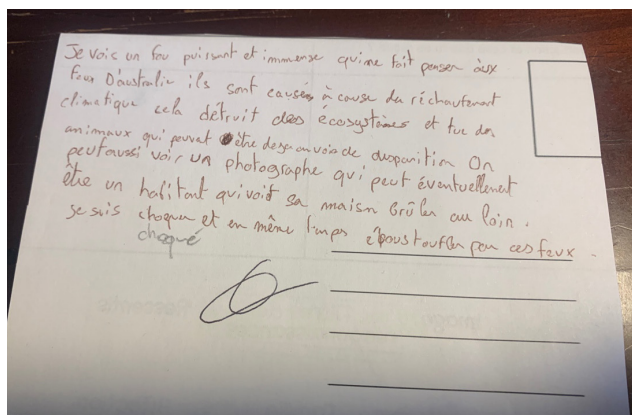 Je vois un feu puissant et immense qui me fait penser aux
feux D'australie ils sont causés à cause du réchaufemant
climatique cela détruit des écosystèmes et tue des
animaux qui peuvent être deja en voie de disparition On
peut aussi voir un photographe qui peut éventuellement
être un habitant qui voit sa maison brûler au loin.
Je suis choquer et en même temps époustoufler par ces feux.
choqué